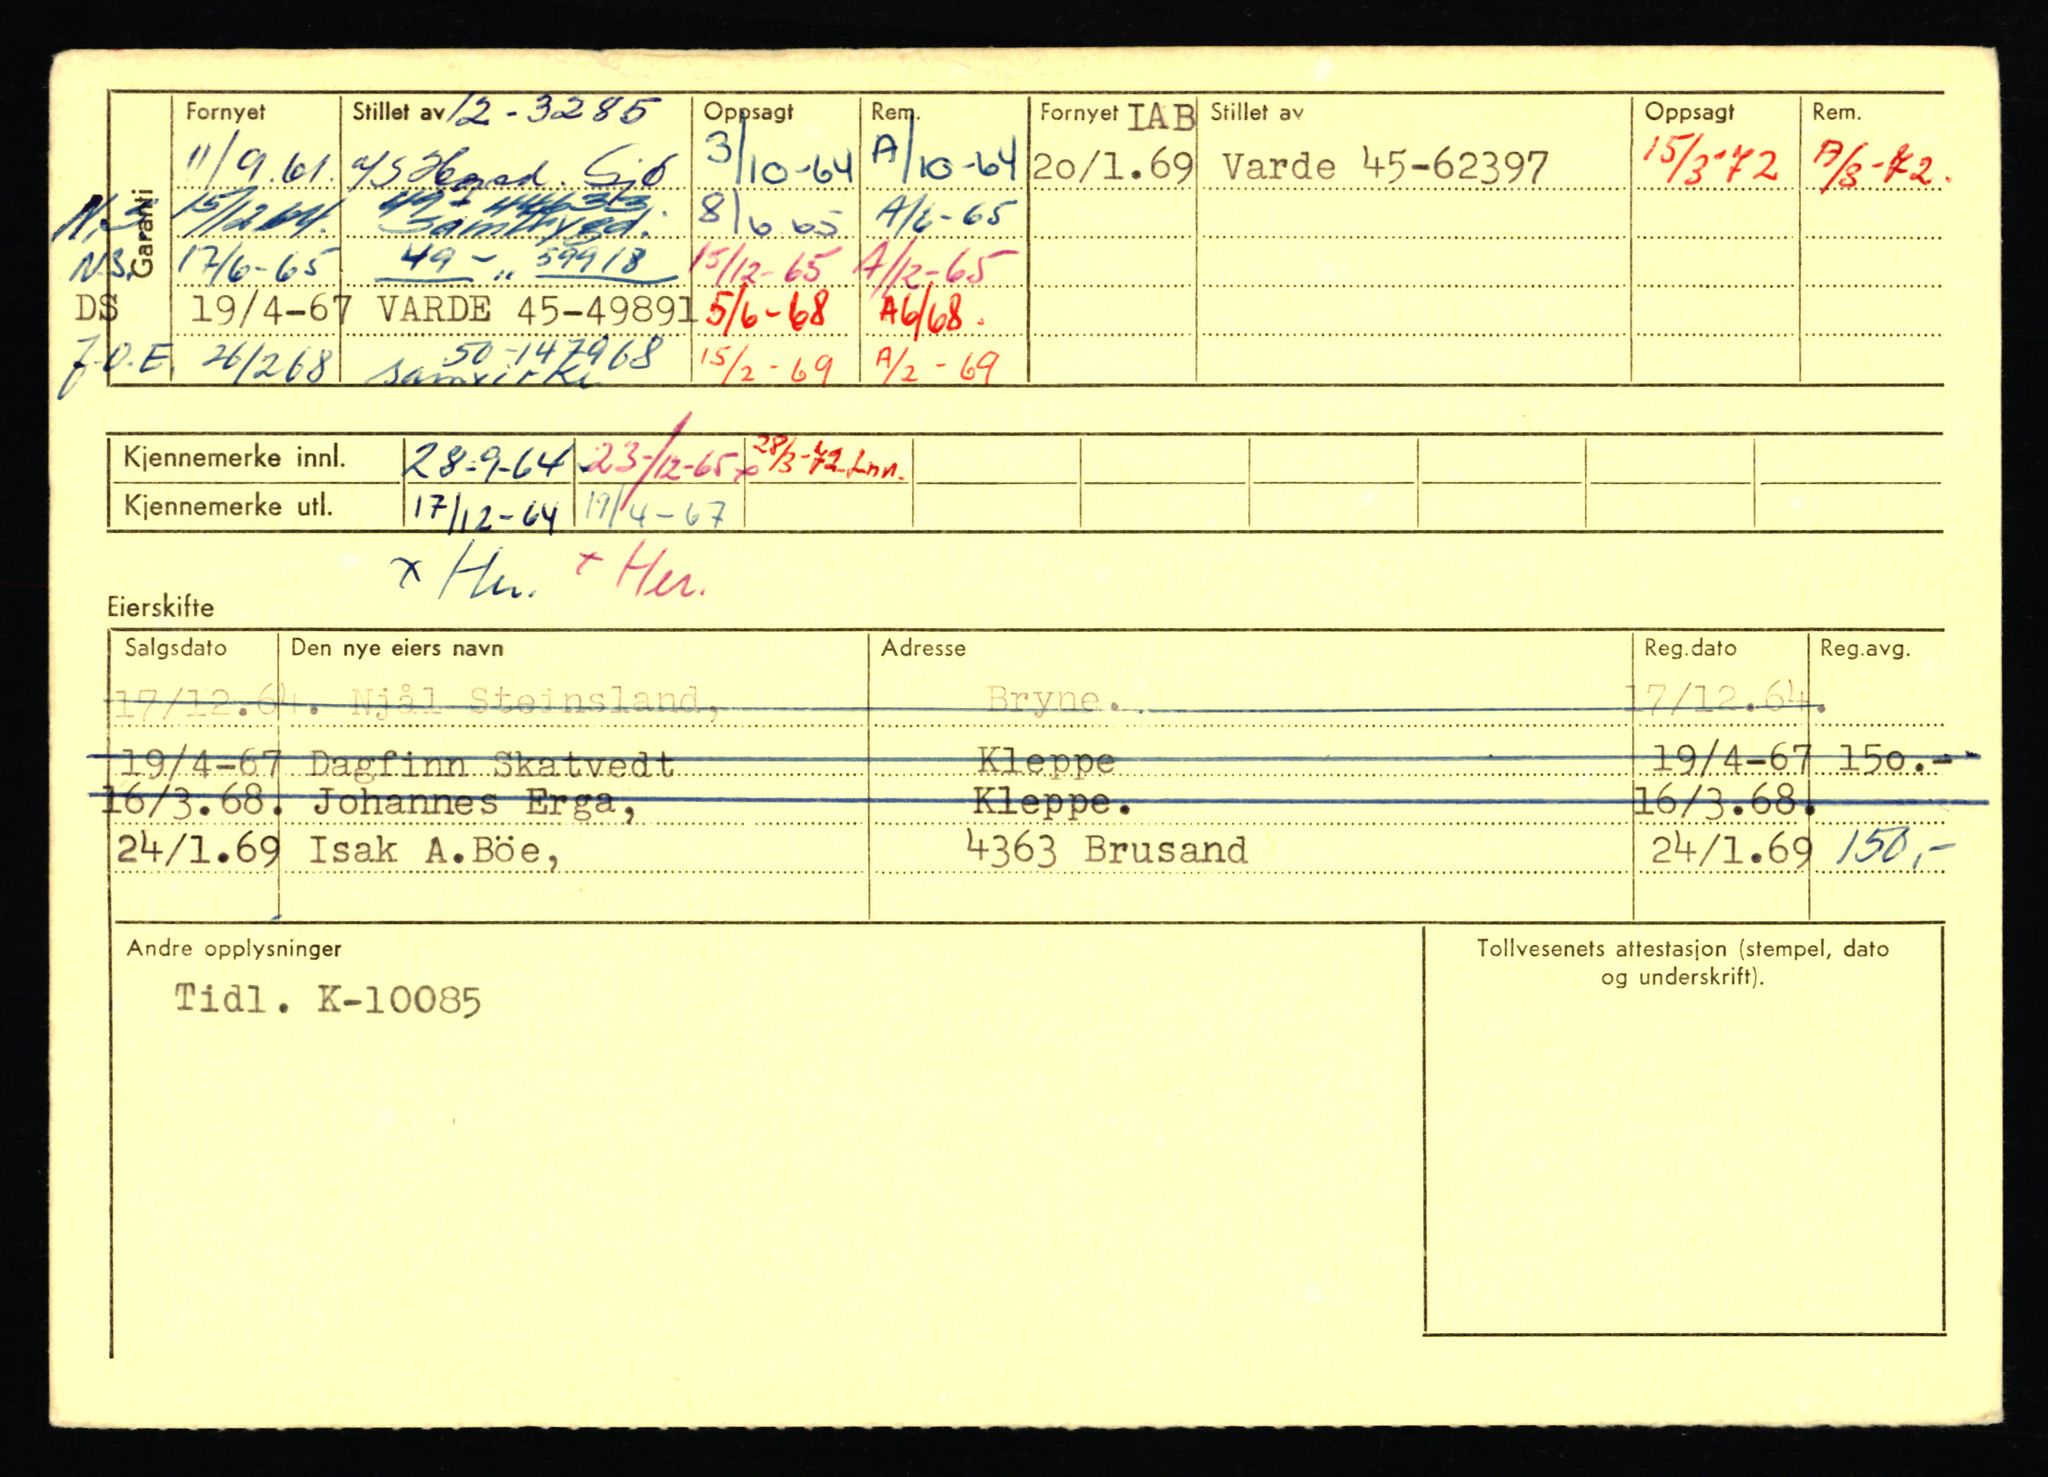 Fornyet Stillet av 12-3285 Oppsagt Rem. Fornyet IAB Stillet av Oppsagt Rem.
Garanti
11/9.61. 3/10-64 A/10-64 20/1.69 Varde 45-62397 15/3-72 A/3-72.
N.S. 15/12 64. Samtrygd. 8/6 65 A/6-65
N.S. 17/6-65 49 - „ 59918 15/12-65 A/12-65
DS 19/4-67 VARDE 45-49891 5/6-68 A6/68.
J.O.E. 26/2 68 50-147968 Samvirke 15/2-69 A/2-69
Kjennemerke innl. 28-9-64 23/12-65 x 28/3-72 Inn.
Kjennemerke utl. 17/12-64 19/4-67
x Her. + Her.
Eierskifte
Salgsdato Den nye eiers navn Adresse Reg.dato Reg.avg.
17/12.64. Njål Steinsland, Bryne. 17/12.64.
19/4-67 Dagfinn Skatvedt Kleppe 19/4-67 150.-
16/3.68. Johannes Erga, Kleppe. 16/3.68.
24/1.69 Isak A.Böe, 4363 Brusand 24/1.69 150,-
Andre opplysninger
Tollvesenets attestasjon (stempel, dato
og underskrift).
Tidl. K-10085